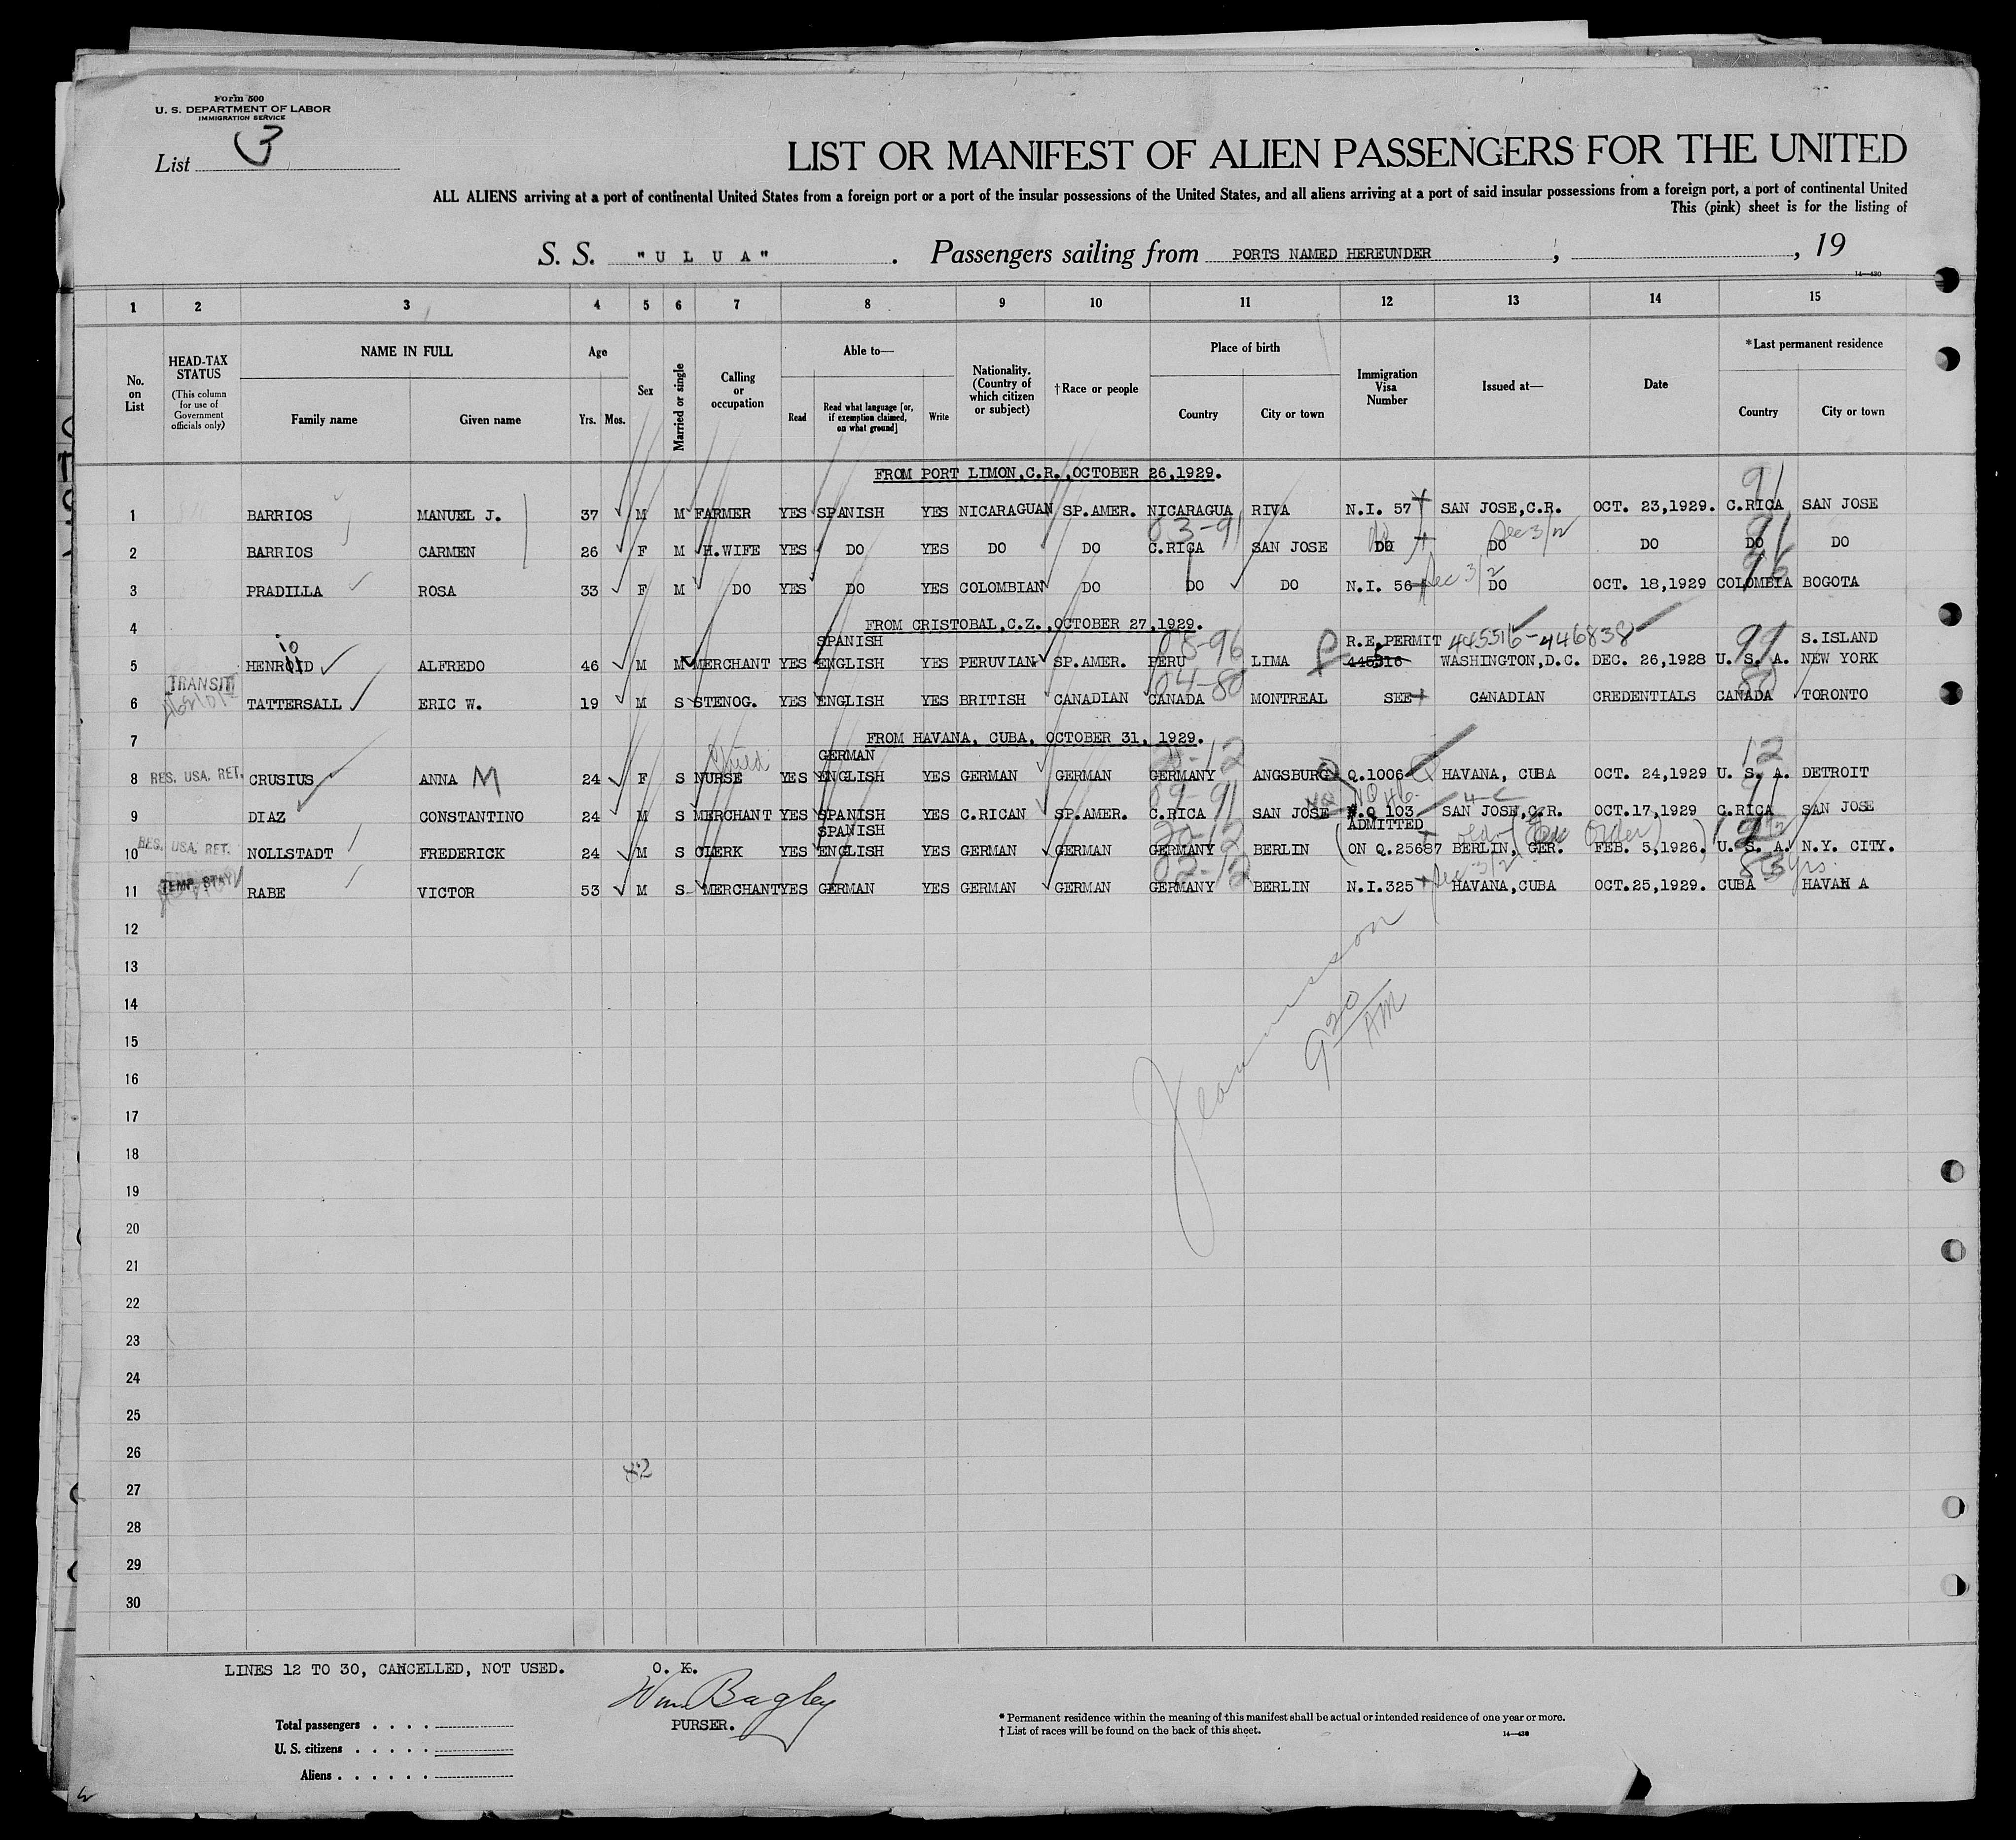 Form 500
U. S. DEPARTMENT OF LABOR
IMMIGRATION SERVICE
List 3
LIST OR MANIFEST OF ALIEN PASSENGERS FOR THE UNITED
ALL ALIENS arriving at a port of continental United States from a foreign port or a port of the insular possessions of the United States, and all aliens arriving at a port of said insular possessions from a foreign port, a port of continental United
This (pink) sheet is for the listing of
S. S. "ULUA". Passengers sailing from PORTS NAMED HEREUNDER, , 19
14—430
1 2 3 4 5 6 7 8 9 10 11 12 13 14 15
No. on List
HEAD-TAX STATUS (This column for use of Government officials only)
NAME IN FULL
Family name
Given name
Age
Yrs. Mos.
Sex
Married or single
Calling or occupation
Able to—
Read
Read what language [or, if exemption claimed, on what ground]
Write
Nationality. (Country of which citizen or subject)
†Race or people
Place of birth
Country
City or town
Immigration Visa Number
Issued at—
Date
*Last permanent residence
Country
City or town
FROM PORT LIMON,C.R.,OCTOBER 26,1929.
91
1 BARRIOS MANUEL J. 37 M M FARMER YES SPANISH YES NICARAGUAN SP.AMER. NICARAGUA RIVA N.I. 57 SAN JOSE,C.R. OCT. 23,1929. C.RICA SAN JOSE
83-91 Sec 3/2 91
2 BARRIOS CARMEN 26 F M H.WIFE YES DO YES DO DO C.RICA SAN JOSE DO DO DO DO DO
Sec 3/2 96
3 PRADILLA ROSA 33 F M DO YES DO YES COLOMBIAN DO DO DO N.I. 56 DO OCT. 18,1929 COLOMBIA BOGOTA
4 FROM CRISTOBAL,C.Z.,OCTOBER 27,1929.
SPANISH R.E.PERMIT 445516-446838 99 S.ISLAND
5 HENRIOD ALFREDO 46 M M MERCHANT YES ENGLISH YES PERUVIAN SP.AMER. PERU LIMA 445316 WASHINGTON,D.C. DEC. 26,1928 U. S. A. NEW YORK
TRANSIT 04-80 80
6 TATTERSALL ERIC W. 19 M S STENOG. YES ENGLISH YES BRITISH CANADIAN CANADA MONTREAL SEE CANADIAN CREDENTIALS CANADA TORONTO
7 FROM HAVANA, CUBA, OCTOBER 31, 1929.
Child GERMAN 12
8 RES. USA. RET. CRUSIUS ANNA M 24 F S NURSE YES ENGLISH YES GERMAN GERMAN GERMANY ANGSBURG Q.1006 HAVANA, CUBA OCT. 24,1929 U. S. A. DETROIT
89-91 NQ 46 4-C 91
9 DIAZ CONSTANTINO 24 M S MERCHANT YES SPANISH YES C.RICAN SP.AMER. C.RICA SAN JOSE Q 103 SAN JOSE,C.R. OCT.17,1929 C.RICA SAN JOSE
SPANISH ADMITTED
10 RES. USA. RET. NOLLSTADT FREDERICK 24 M S CLERK YES ENGLISH YES GERMAN GERMAN GERMANY BERLIN ON Q.25687 BERLIN, GER. FEB. 5,1926. U. S. A. N.Y. CITY.
TEMP. STAY Sec 3/2 83 yrs.
11 RABE VICTOR 53 M S MERCHANT YES GERMAN YES GERMAN GERMAN GERMANY BERLIN N.I.325 HAVANA,CUBA OCT.25,1929. CUBA HAVANA
12
13
14
15
16
17
18
19
20
21
22
23
24
25
26
27
28
29
30
9 20/AM
LINES 12 TO 30, CANCELLED, NOT USED.
O. K.
Wm Bagley
PURSER.
Total passengers
U. S. citizens
Aliens
* Permanent residence within the meaning of this manifest shall be actual or intended residence of one year or more.
† List of races will be found on the back of this sheet.
14—430